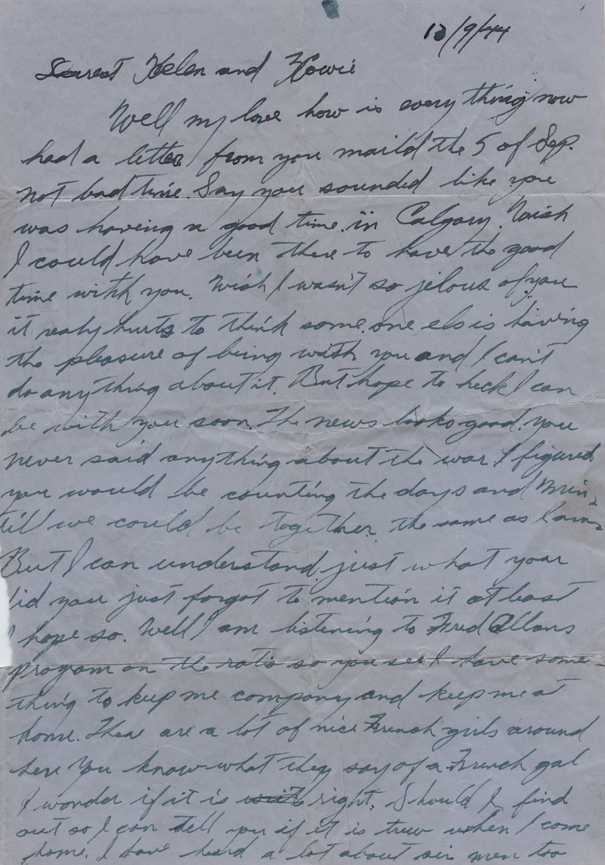 13/9/44
Dearest Helen and Howie
Well my love how is every thing now
had a letter from you maild the 5 of Sep.
not bad time. Say you sounded like you
was having a good time in Calgary. Wish
I could have been there to have the good
time with you. Wish I wasn't so jelous of you
it realy hurts to think some one els is having
the pleasure of being with you and I can't
do any thing about it. But hope to heck I can
be with you soon. The news looks good. you
never said anything about the war. I figured
you would be counting the days and min
till we could be together. the same as I am
But I can understand just what your
did you just forgot to mention it at least
I hope so. Well I am listening to Fred Allans
program on the so you see I have some
thing to keep me company and keep me at
home. There are a lot of nice French girls around
here You know what they say of a French gal
I wonder if it is right. Should I find
out so I can tell you if it is true when I come
home. I have heard a lot about men too